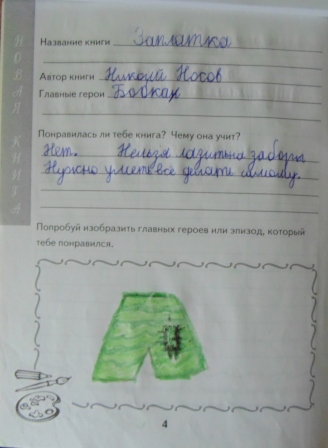 НОВАЯ КНИГА
Название книги Заплатка
Автор книги Николай Носов
Главные герои Бобкак
Понравилась ли тебе книга? Чему она учит?
Нет. Нельзя лазить на заборы
Нужно уметь все делать самому.
Попробуй изобразить главных героев или эпизод, который
тебе понравился.
4